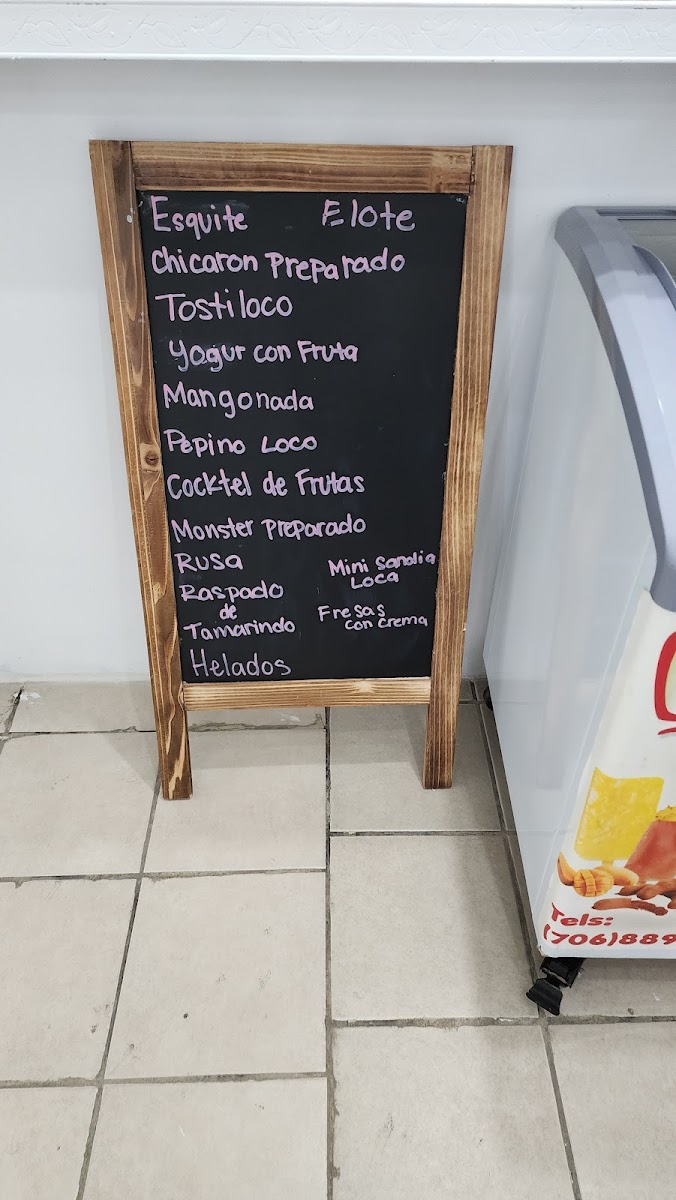 Esquite Elote
Chicaron Preparado
Tostiloco
Yogur con Fruta
Mangonada
Pepino Loco
Cocktel de Frutas
Monster Preparado
Rusa
Mini Sandia
Loca
Raspado
de
Tamarindo
Fresas
con crema
Helados
Tels:
(706)889